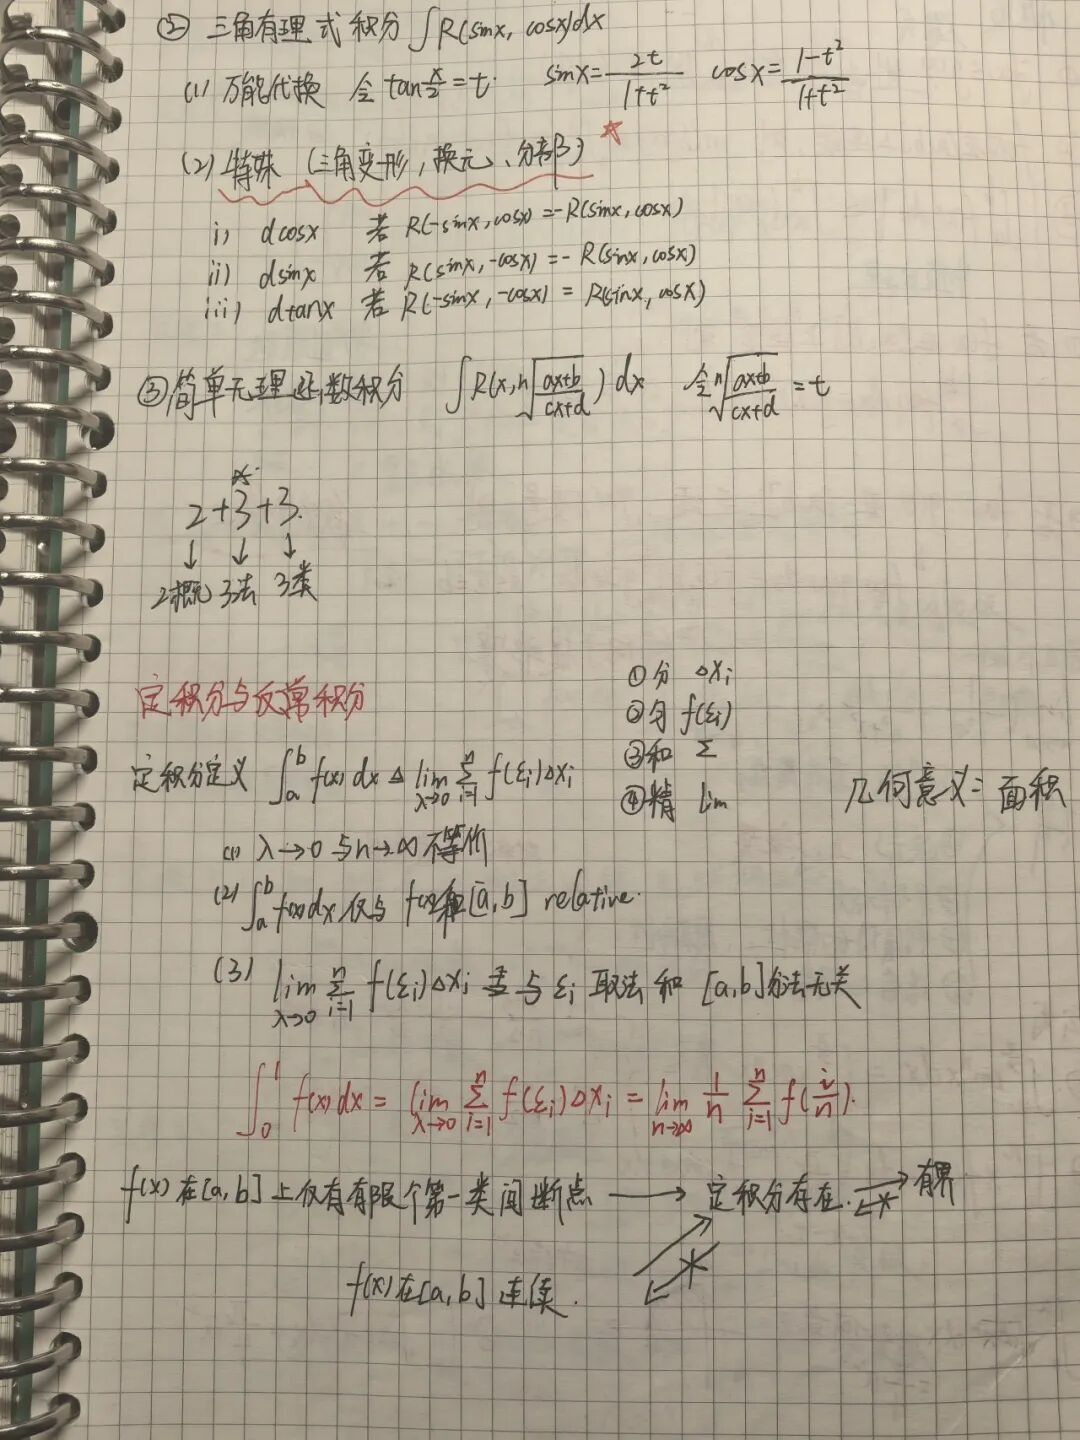 ② 三角有理式积分 ∫R(sinx, cosx)dx
(1) 万能代换 令 tan x/2 = t. sinx = 2t/(1+t²) cosx = (1-t²)/(1+t²)
(2) 特殊 (三角变形, 换元、分部) ☆
i) dcosx 若 R(-sinx, cosx) = -R(sinx, cosx)
ii) dsinx 若 R(sinx, -cosx) = - R(sinx, cosx)
iii) dtanx 若 R(-sinx, -cosx) = R(sinx, cosx)
③ 简单无理函数积分 ∫R(x, ⁿ√((ax+b)/(cx+d))) dx 令 ⁿ√((ax+b)/(cx+d)) = t
2+3+3.
↓ ↓ ↓
2概 3法 3类
定积分与反常积分
① 分 ΔXi
② 匀 f(ξi)
③ 和 Σ
④ 精 lim
定积分定义 ∫ₐᵇ f(x) dx ≜ lim λ→0 Σ i=1 n f(ξi)Δxi
几何意义: 面积
(1) λ→0 与 n→∞ 不等价
(2) ∫ₐᵇ f(x)dx 仅与 f(x)和[a,b] relative.
(3) lim λ→0 Σ i=1 n f(ξi)Δxi 与 ξi 取法和 [a,b]分法无关
∫₀¹ f(x)dx = lim λ→0 Σ i=1 n f(ξi)ΔXi = lim n→∞ 1/n Σ i=1 n f(i/n).
f(x)在[a,b]上仅有有限个第一类间断点 → 定积分存在. ⇄ 有界
f(x)在[a,b]连续.